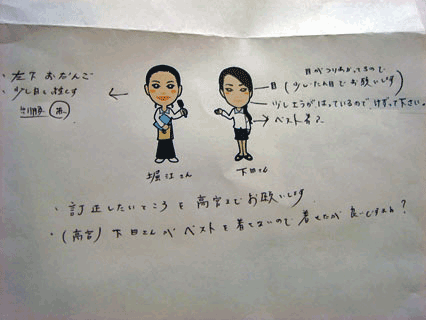 ・左下 おだんご
・少し目を離す
目がつりあがってるので
目(少したれ目でお願いします)
少しえらがはっているので けずって下さい。
ベスト着る
堀江さん
下田さん
・訂正したいところを高宮までお願いします
・(高宮) 下田さんがベストを着てないので 着せた方が良いですか?